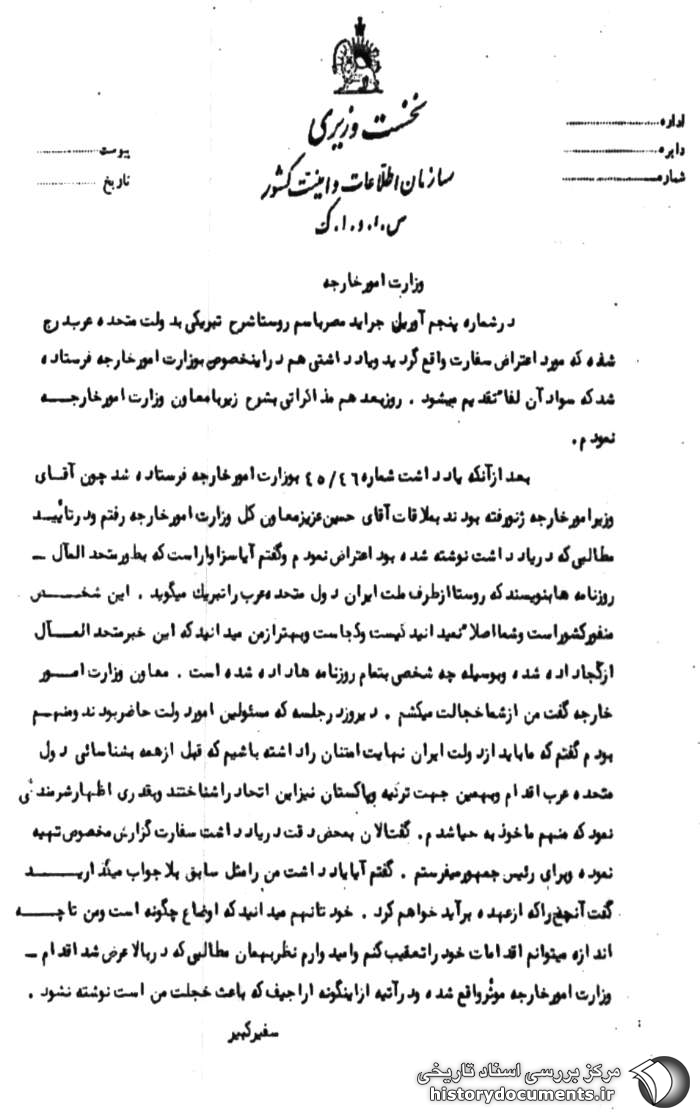 نخست وزیری
سازمان اطلاعات و امنیت کشور
س.ا.و.ا.ک
اداره
دایره
شماره
پیوست
تاریخ
وزارت امورخارجه
در شماره پنجم آوریل جراید مصر باسم روستا شرح تبریکی بدولت متحده عرب درج
شده که مورد اعتراض سفارت واقع گردید و یادداشتی هم در اینخصوص بوزارت امورخارجه فرستاده
شد که سواد آن لفاً تقدیم میشود . روز بعد هم مذاکراتی بشرح زیر با معاون وزارت امورخارجه
نمودم .
بعد از آنکه یادداشت شماره ۴۵/۴۶ بوزارت امورخارجه فرستاده شد چون آقای
وزیر امورخارجه ژنو رفته بودند بملاقات آقای حسین عزیز معاون کل وزارت امورخارجه رفتم و در تأیید
مطالبی که در یادداشت نوشته شده بود اعتراض نمودم و گفتم آیا سزاوار است که بطور متحد المآل ـ
روزنامه ها بنویسند که روستا از طرف ملت ایران دول متحده عرب را تبریک میگوید . این شخص
منفور کشور است و شما اصلاً نمیدانید کیست و کجاست و بهتر از من میدانید که این خبر متحد المآل
از کجا داده شده و بوسیله چه شخصی بتمام روزنامه ها داده شده است . معاون وزارت امور
خارجه گفت من از شما خجالت میکشم . دیروز در جلسه که مسئولین امور دولت حاضر بودند و منهم
بودم گفتم که ما باید از دولت ایران نهایت امتنان را داشته باشیم که قبل از همه بشناسائی دول
متحده عرب اقدام و بهمین جهت ترکیه و پاکستان نیز این اتحاد را شناختند و بقدری اظهار شرمندگی
نمود که منهم ماخوذ به حیا شدم . گفت الان بمحض دقت در یادداشت سفارت گزارش مخصوص تهیه
نموده و برای رئیس جمهور میفرستم . گفتم آیا یادداشت من را مثل سابق بلا جواب میگذارید
گفت آنچه را که از عهده برآید خواهم کرد . خودتانهم میدانید که اوضاع چگونه است و من تا چه
اندازه میتوانم اقدامات خود را تعقیب کنم و امیدوارم نظر بهمان مطالبی که در بالا عرض شد اقدام ـ
وزارت امورخارجه موثر واقع شده و در آتیه از اینگونه اراجیف که باعث خجلت من است نوشته نشود .
سفیر کبیر
مرکز بررسی اسناد تاریخی
historydocuments.ir